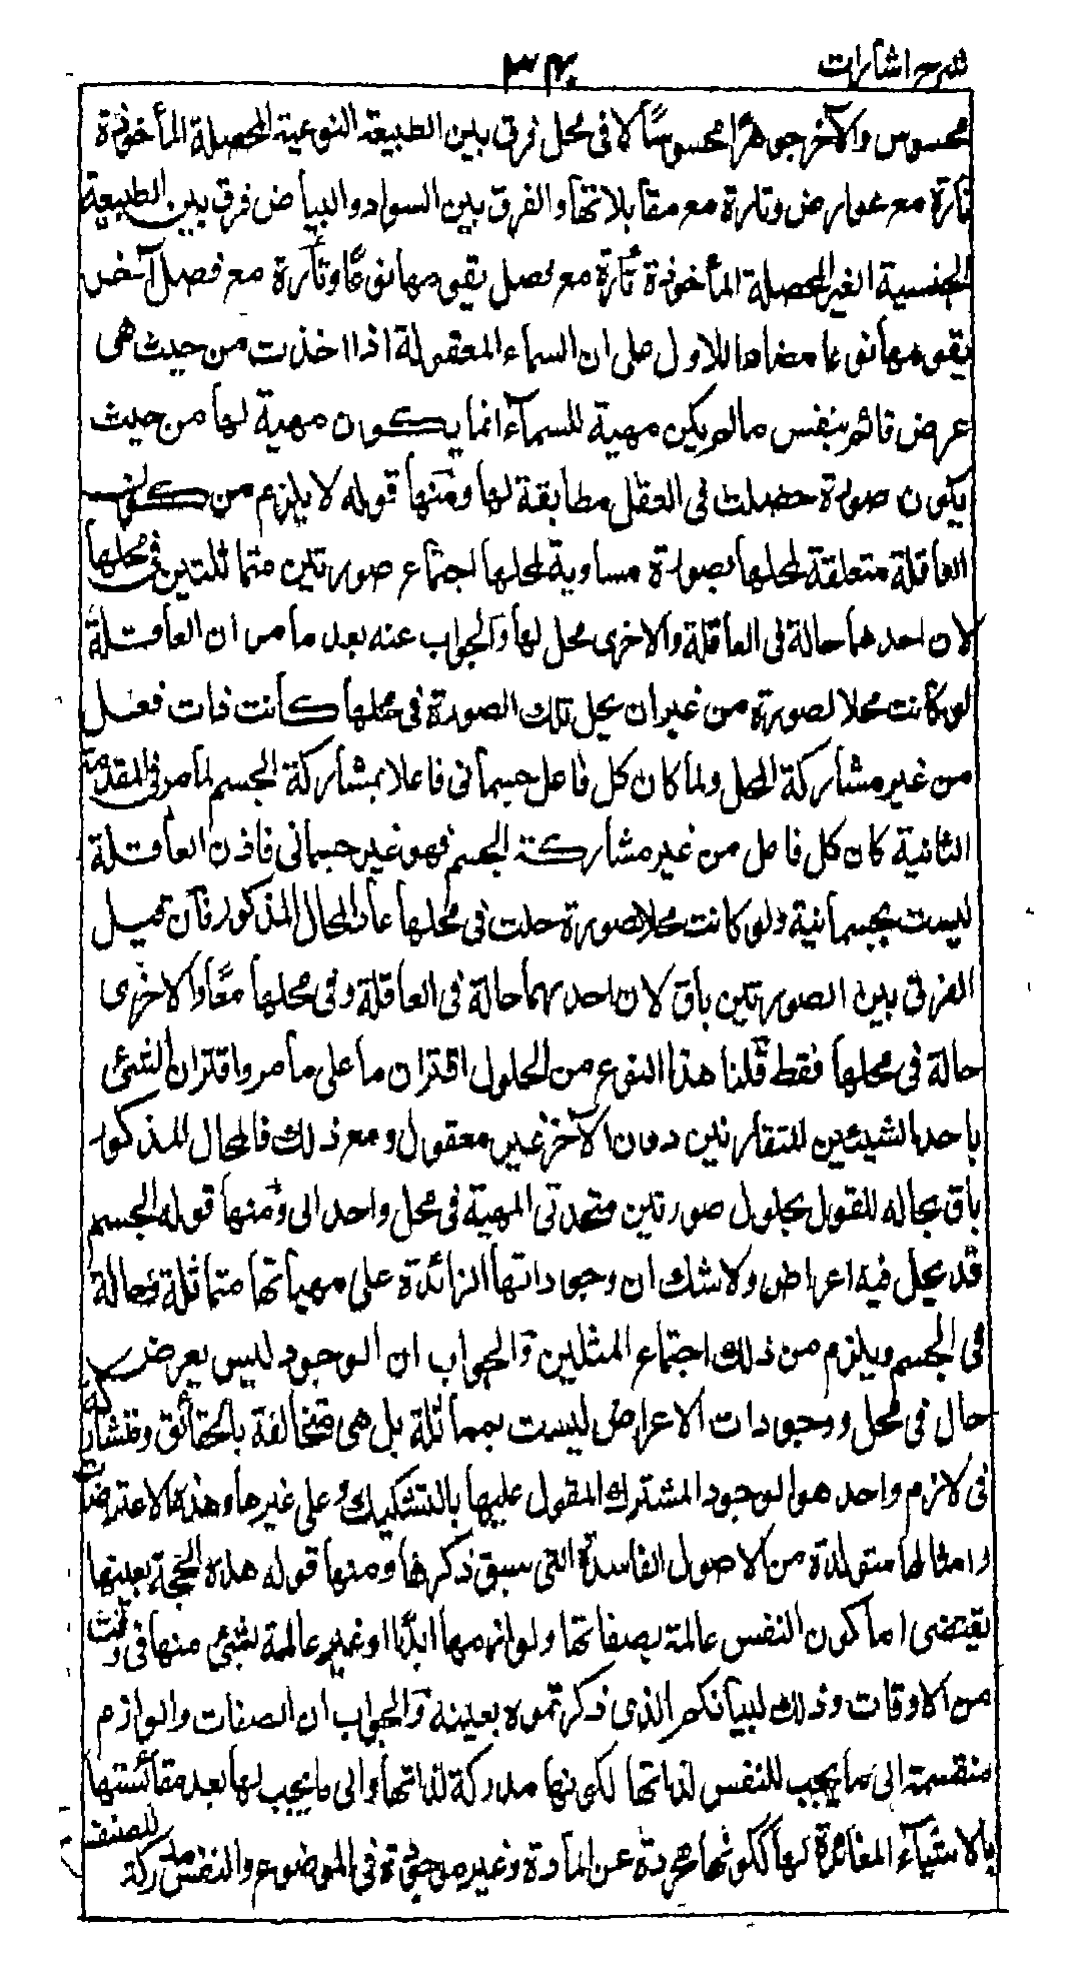 شرح اشارات
محسوس والآخر جوهرًا محسوسًا لا فى محل فرق بين الطبيعة النوعية المحصلة المأخوذة
تارة مع عوارض وتارة مع مقابلاتها والفرق بين السواد والبياض فرق بين الطبيعة
الجنسية الغير المحصلة المأخوذة تارة مع فصل يقومها نوعًا وتارة مع فصل آخر
يقومها نوعا مضادا للاول على ان السماء المعقولة اذا اخذت من حيث هى
عرض قائم بنفس ما لم يكن مهية للسماء انما يكون مهية لها من حيث
يكون صورة حصلت فى العقل مطابقة لها ومنها قوله لا يلزم من كون
العاقلة متعلقة لمحلها بصورة مساوية لمحلها اجتماع صورتين متماثلتين فى محلها
لان احدهما حالة فى العاقلة والاخرى محل لها والجواب عنه بعد ما مر ان العاقلة
لو كانت محلا لصورة من غير ان يحل تلك الصورة فى محلها كانت ذات فعل
من غير مشاركة المحل ولما كان كل فاعل جسمانى فاعلا بمشاركة الجسم لما مر فى المقدمة
الثانية كان كل فاعل من غير مشاركة الجسم فهو غير جسمانى فاذن العاقلة
ليست بجسمانية ولو كانت محلا لصورة حلت فى محلها عاد المحال المذكور فان قيل
الفرق بين الصورتين باق لان احديهما حالة فى العاقلة وفى محلها معًا والاخرى
حالة فى محلها فقط قلنا هذا النوع من الحلول اقتران ما على ما مر واقتران الشئ
باحد الشيئين المتقارنين دون الآخر غير معقول ومع ذلك فالمحال المذكور
باق بحاله للقول بحلول صورتين متحدتى المهية فى محل واحد الى ومنها قوله الجسم
قد يحل فيه اعراض ولا شك ان وجوداتها الزائدة على مهياتها متماثلة فحالة
فى الجسم ويلزم من ذلك اجتماع المثلين والجواب ان الوجود ليس بعرض
حال فى محل ووجودات الاعراض ليست بمماثلة بل هى متخالفة بالحقائق ومتشاركة
فى لازم واحد هو الوجود المشترك المقول عليها بالتشكيك وعلى غيرها وهذه الاعتراضات
وامثالها متولدة من الاصول الفاسدة التى سبق ذكرها ومنها قوله هذه الحجة بعينها
يقتضى اما كون النفس عالمة بصفاتها ولوازمها ابدًا او غير عالمة بشئ منها فى وقت
من الاوقات وذلك لبيانكم الذى ذكرتموه بعينه والجواب ان الصفات واللوازم
منقسمة الى ما يجب للنفس لذاتها لكونها مدركة لذاتها والى ما يجب لها بعد مقائستها
بالاشياء المغائرة لها ككونها مجردة عن المادة وغير موجودة فى الموضوع والنفس مدركة
للصنف